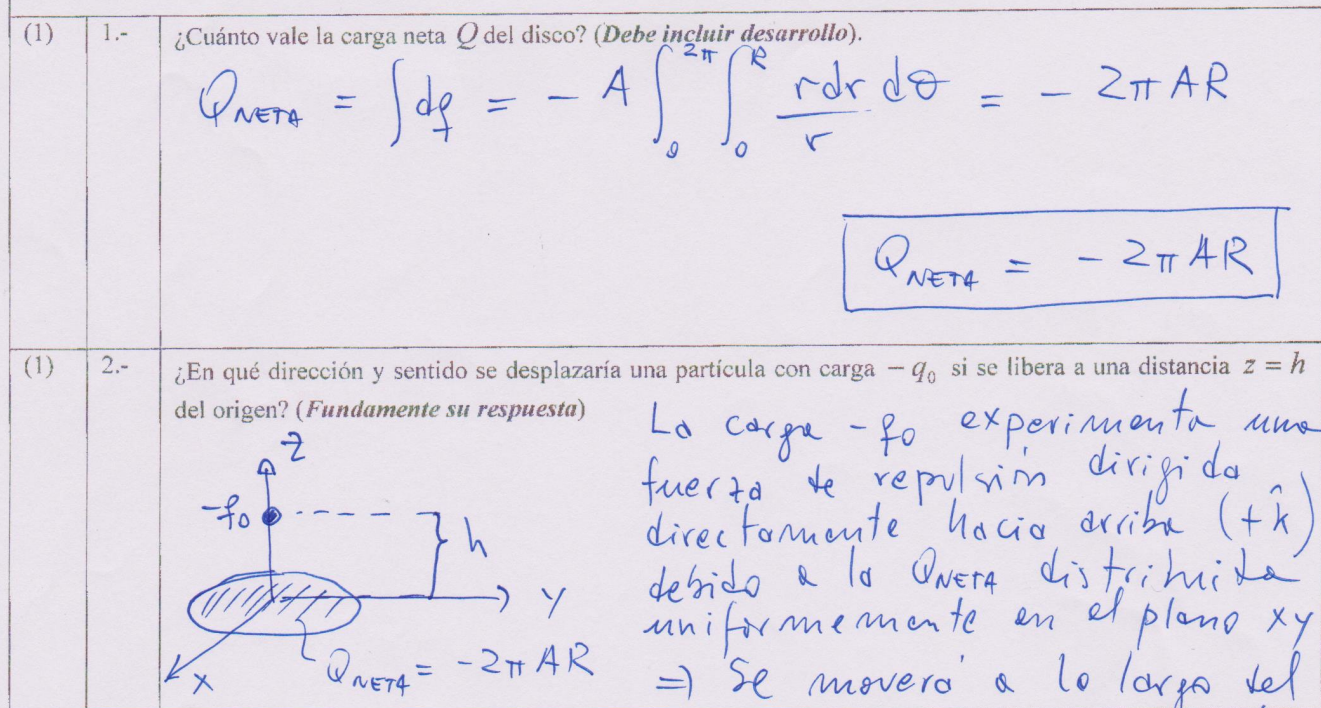 (1) 1.- ¿Cuánto vale la carga neta Q del disco? (Debe incluir desarrollo).
Q_NETA = ∫dq = - A ∫_0^{2π} ∫_0^R \frac{r dr dθ}{r} = - 2π AR
Q_NETA = - 2π AR
(1) 2.- ¿En qué dirección y sentido se desplazaría una partícula con carga − q_0 si se libera a una distancia z = h
del origen? (Fundamente su respuesta)
La carga -q_0 experimenta una
fuerza de repulsión dirigida
directamente hacia arriba (+k̂)
debido a la Q_NETA distribuida
uniformemente en el plano xy
=) Se moverá a lo largo del
Z
-q_0
h
Y
X
Q_NETA = -2π AR